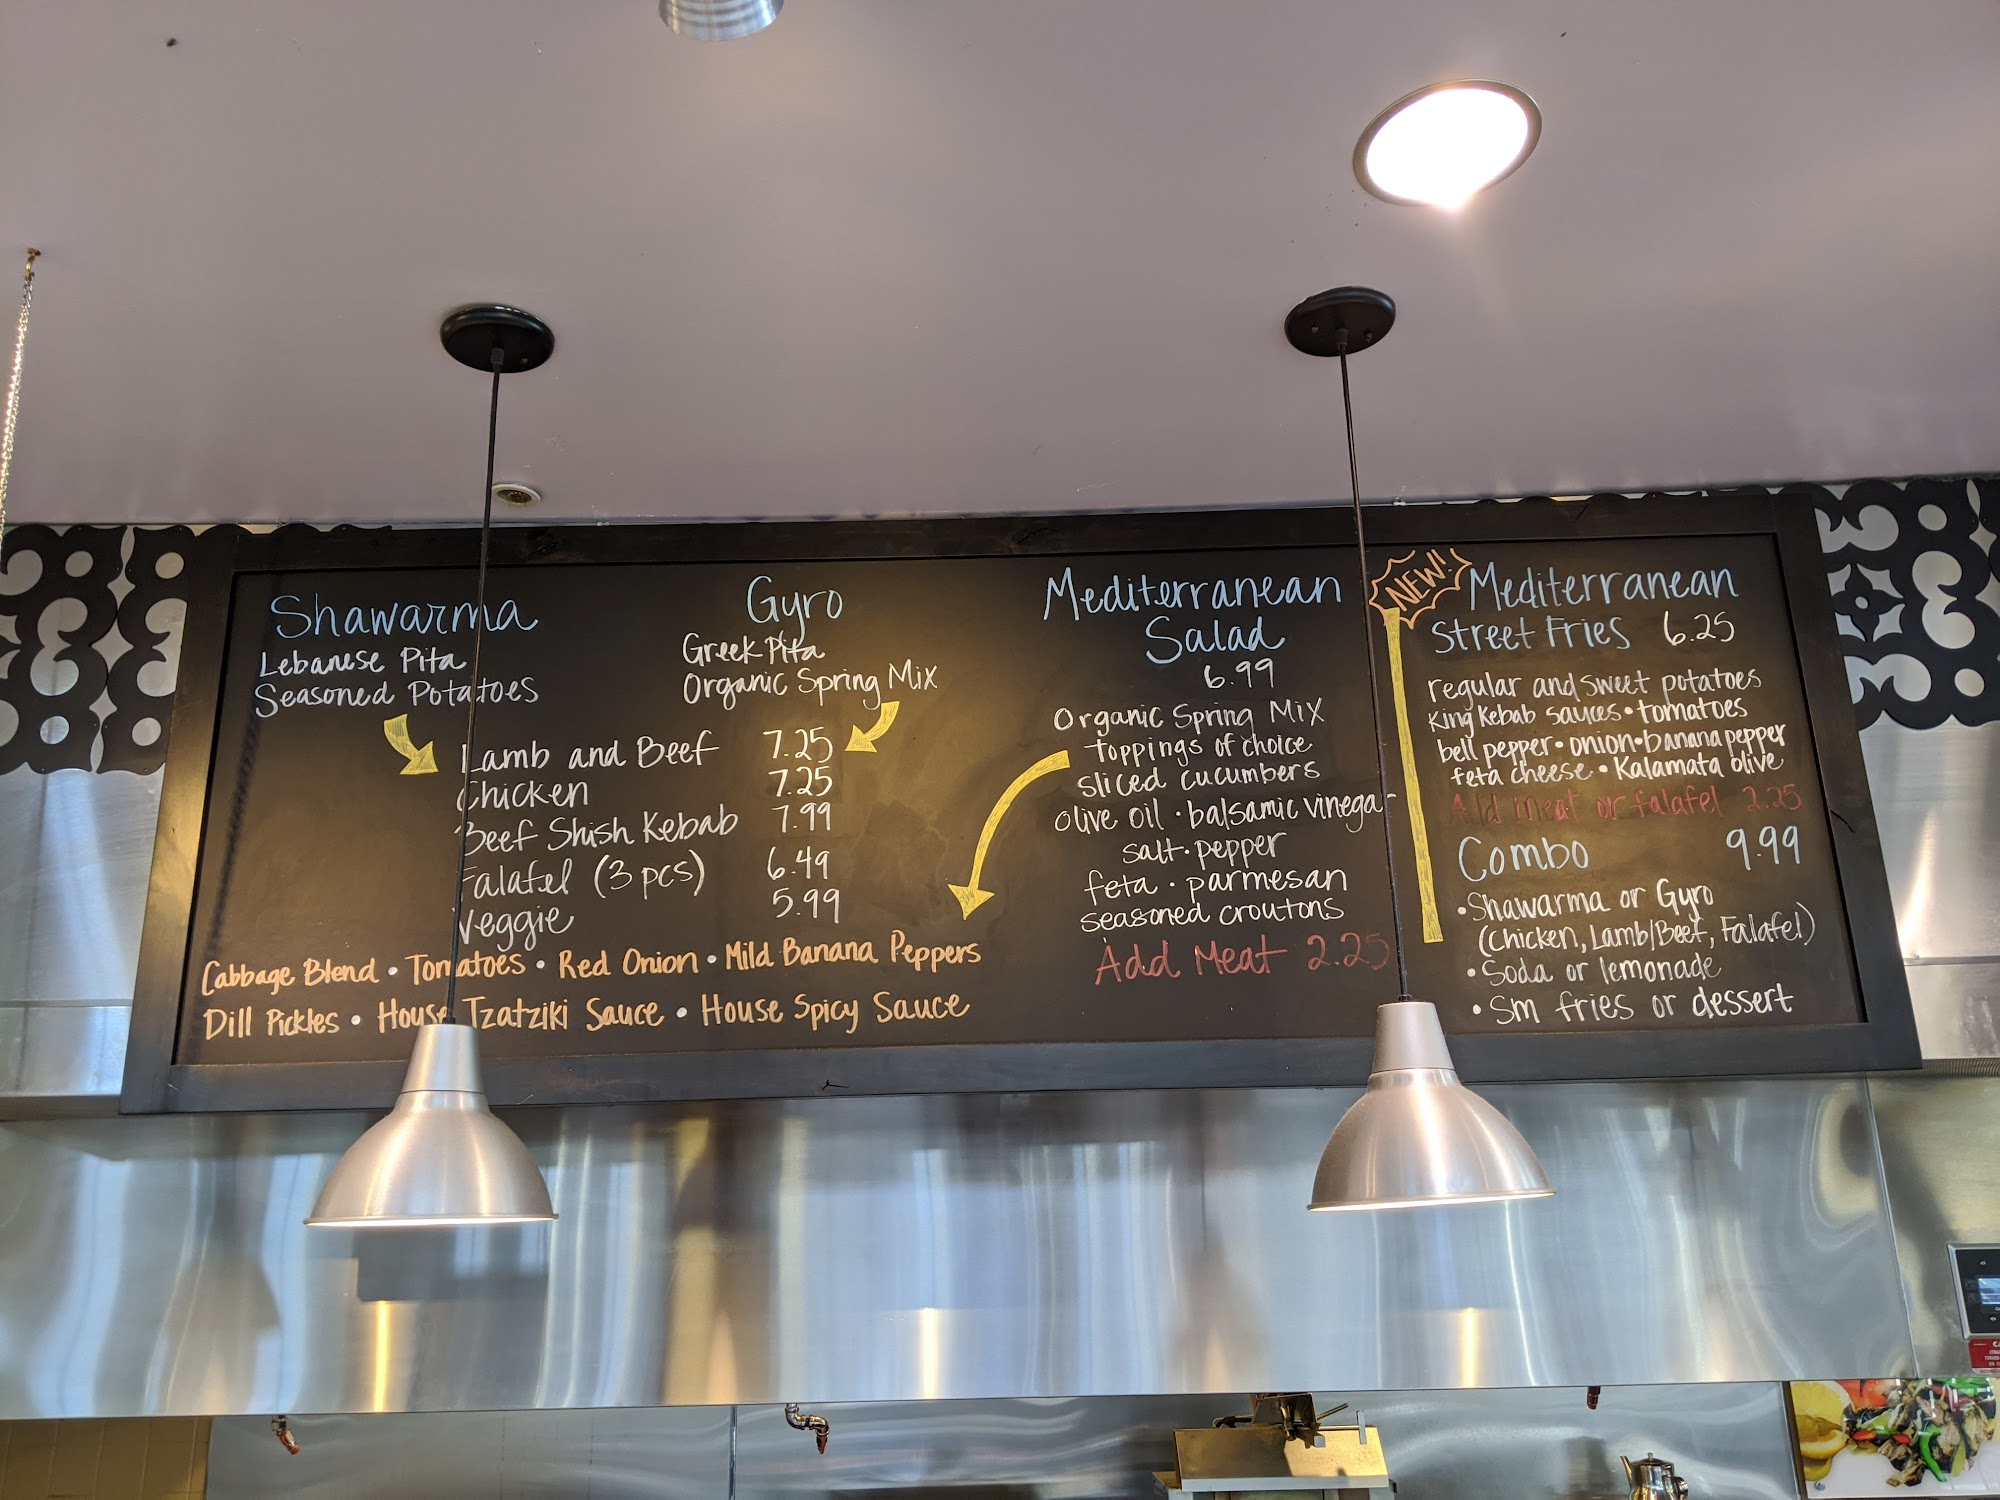 Shawarma
Lebanese Pita
Seasoned Potatoes
Gyro
Greek Pita
Organic Spring Mix
Lamb and Beef 7.25
Chicken 7.25
Beef Shish Kebab 7.99
Falafel (3 pcs) 6.49
Veggie 5.99
Cabbage Blend • Tomatoes • Red Onion • Mild Banana Peppers
Dill Pickles • House Tzatziki Sauce • House Spicy Sauce
Mediterranean
Salad
6.99
Organic Spring Mix
toppings of choice
sliced cucumbers
olive oil • balsamic vinegar
salt • pepper
feta • parmesan
seasoned croutons
Add Meat 2.25
NEW!
Mediterranean
Street Fries 6.25
regular and sweet potatoes
King Kebab sauces • tomatoes
bell pepper • onion • banana pepper
feta cheese • Kalamata olive
Add meat or falafel 2.25
Combo 9.99
• Shawarma or Gyro
(Chicken, Lamb/Beef, Falafel)
• Soda or lemonade
• Sm fries or dessert